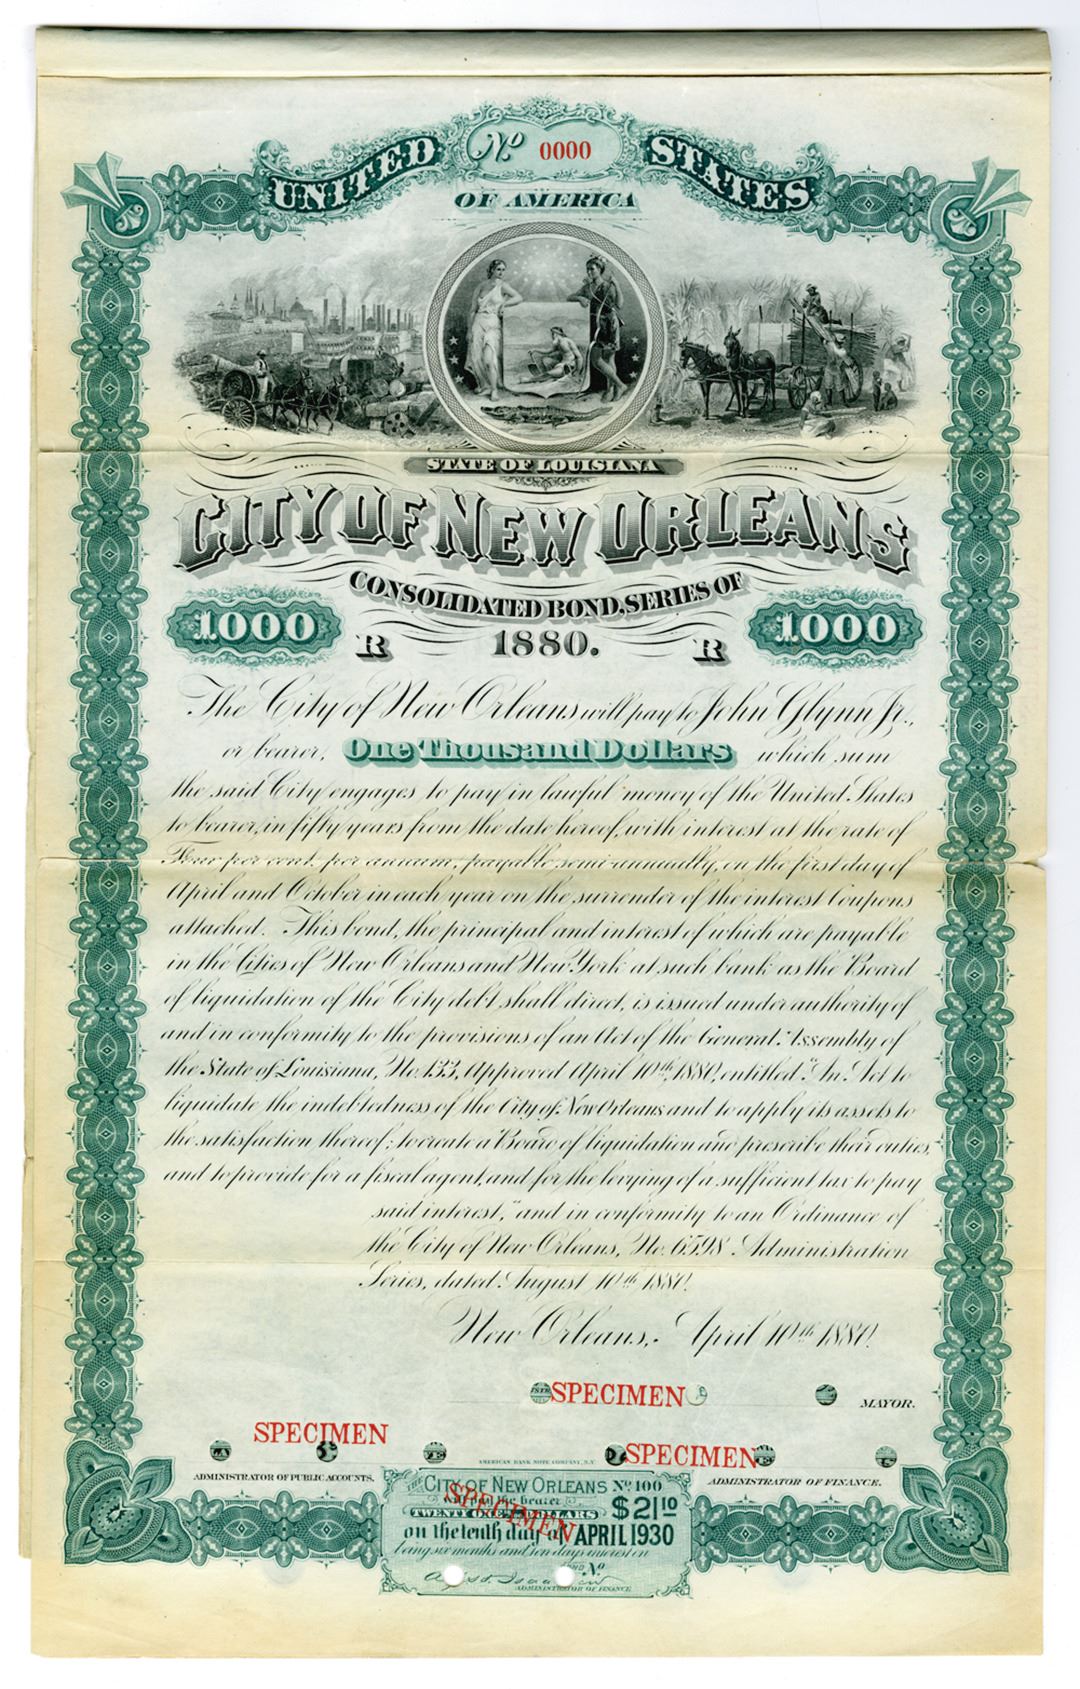 UNITED STATES
No. 0000
OF AMERICA
STATE OF LOUISIANA
CITY OF NEW ORLEANS
CONSOLIDATED BOND, SERIES OF
1000 R 1880. R 1000
The City of New Orleans will pay to John Glynn Jr.,
or bearer, One Thousand Dollars which sum
the said City engages to pay in lawful money of the United States
to bearer, in fifty years from the date hereof, with interest at the rate of
Four per cent. per annum, payable semi-annually, on the first day of
April and October in each year on the surrender of the interest Coupons
attached. This bond, the principal and interest of which are payable
in the Cities of New Orleans and New York at such bank as the Board
of liquidation of the City debt, shall direct, is issued under authority of
and in conformity to the provisions of an Act of the General Assembly of
the State of Louisiana, No. 133, Approved April 10th, 1880, entitled "An Act to
liquidate the indebtedness of the City of New Orleans and to apply its assets to
the satisfaction thereof; to create a Board of liquidation and prescribe their duties,
and to provide for a fiscal agent, and for the levying of a sufficient tax to pay
said interest," and in conformity to an Ordinance of
the City of New Orleans, No. 6598 Administration
Series, dated August 10th 1880.
New Orleans, April 10th 1880.
SPECIMEN
MAYOR.
SPECIMEN
SPECIMEN
AMERICAN BANK NOTE COMPANY, N.Y.
ADMINISTRATOR OF PUBLIC ACCOUNTS.
ADMINISTRATOR OF FINANCE.
The CITY OF NEW ORLEANS No. 100
bearer
TWENTY ONE DOLLARS $21 10
SPECIMEN
on the tenth day of APRIL 1930
being six months and ten days interest on
No.
ADMINISTRATOR OF FINANCE